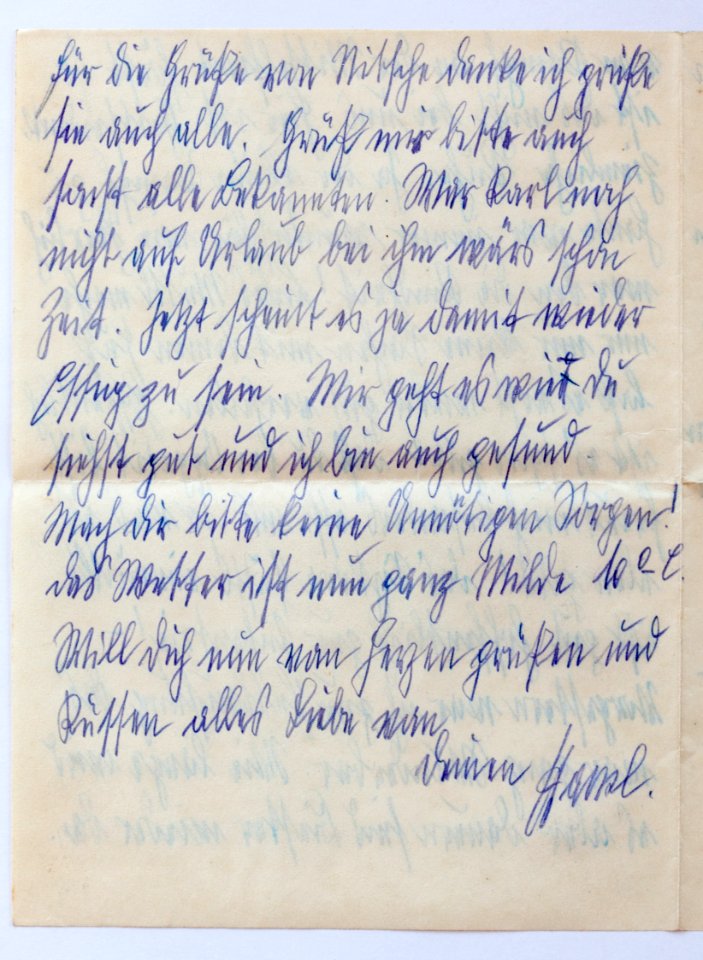 Für die Grüße von Nitsche danke ich grüße
sie auch alle. Grüß mir bitte auch
sonst alle Bekannten. War Karl noch
nicht auf Urlaub bei ihm wärs schon
Zeit. Jetzt scheint es ja damit wieder
Essig zu sein. Mir geht es wie Du
siehst gut und ich bin auch gesund
Mach dir bitte keine Unnötigen Sorgen!
das Wetter ist nun ganz Milde 10° C.
Will dich nun von Herzen grüßen und
Küssen alles Liebe von
deinen